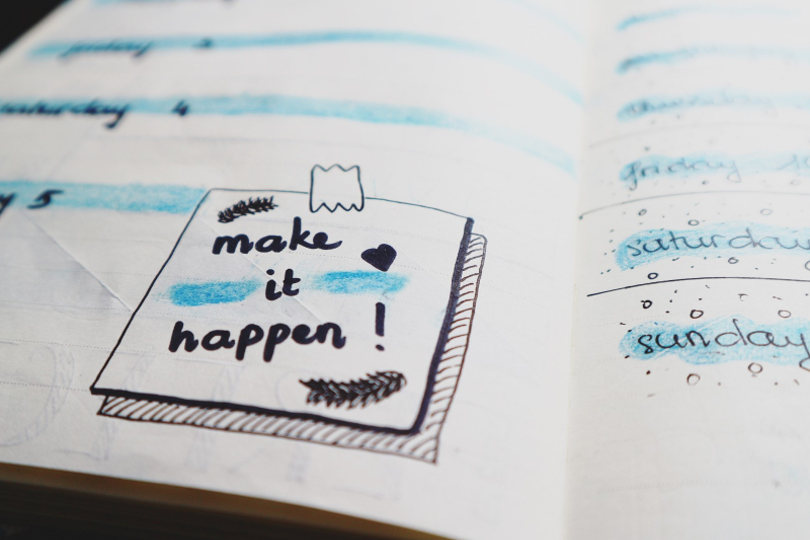 friday 3
saturday 4
5
make
it
happen !
friday
saturday
sunday